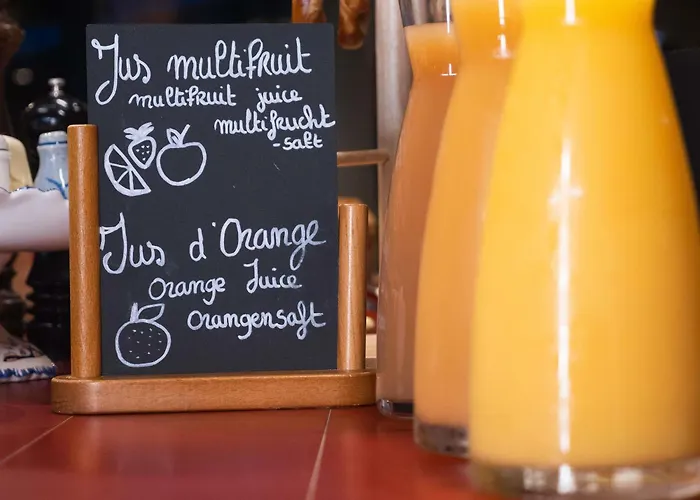 Jus multifruit
multifruit juice
multifrucht
-saft
Jus d'Orange
Orange Juice
Orangensaft